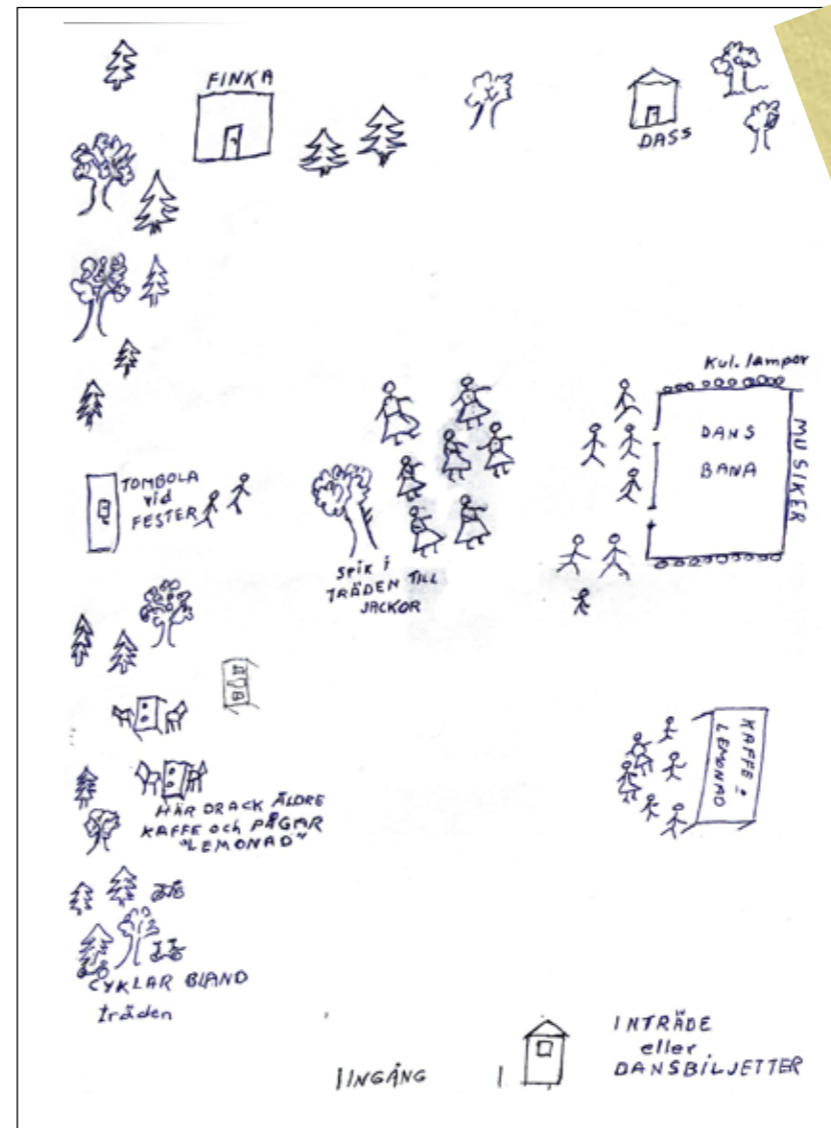 FINKA
DASS
Kul. lampor
DANS
BANA
MUSIKER
TOMBOLA
vid
FESTER
SPIK i
TRÄDEN TILL
JACKOR
KAFFE &
LEMONAD
HÄR DRACK ÄLDRE
KAFFE och PÅGAR
"LEMONAD"
CYKLAR BLAND
träden
INGÅNG
INTRÄDE
eller
DANSBILJETTER